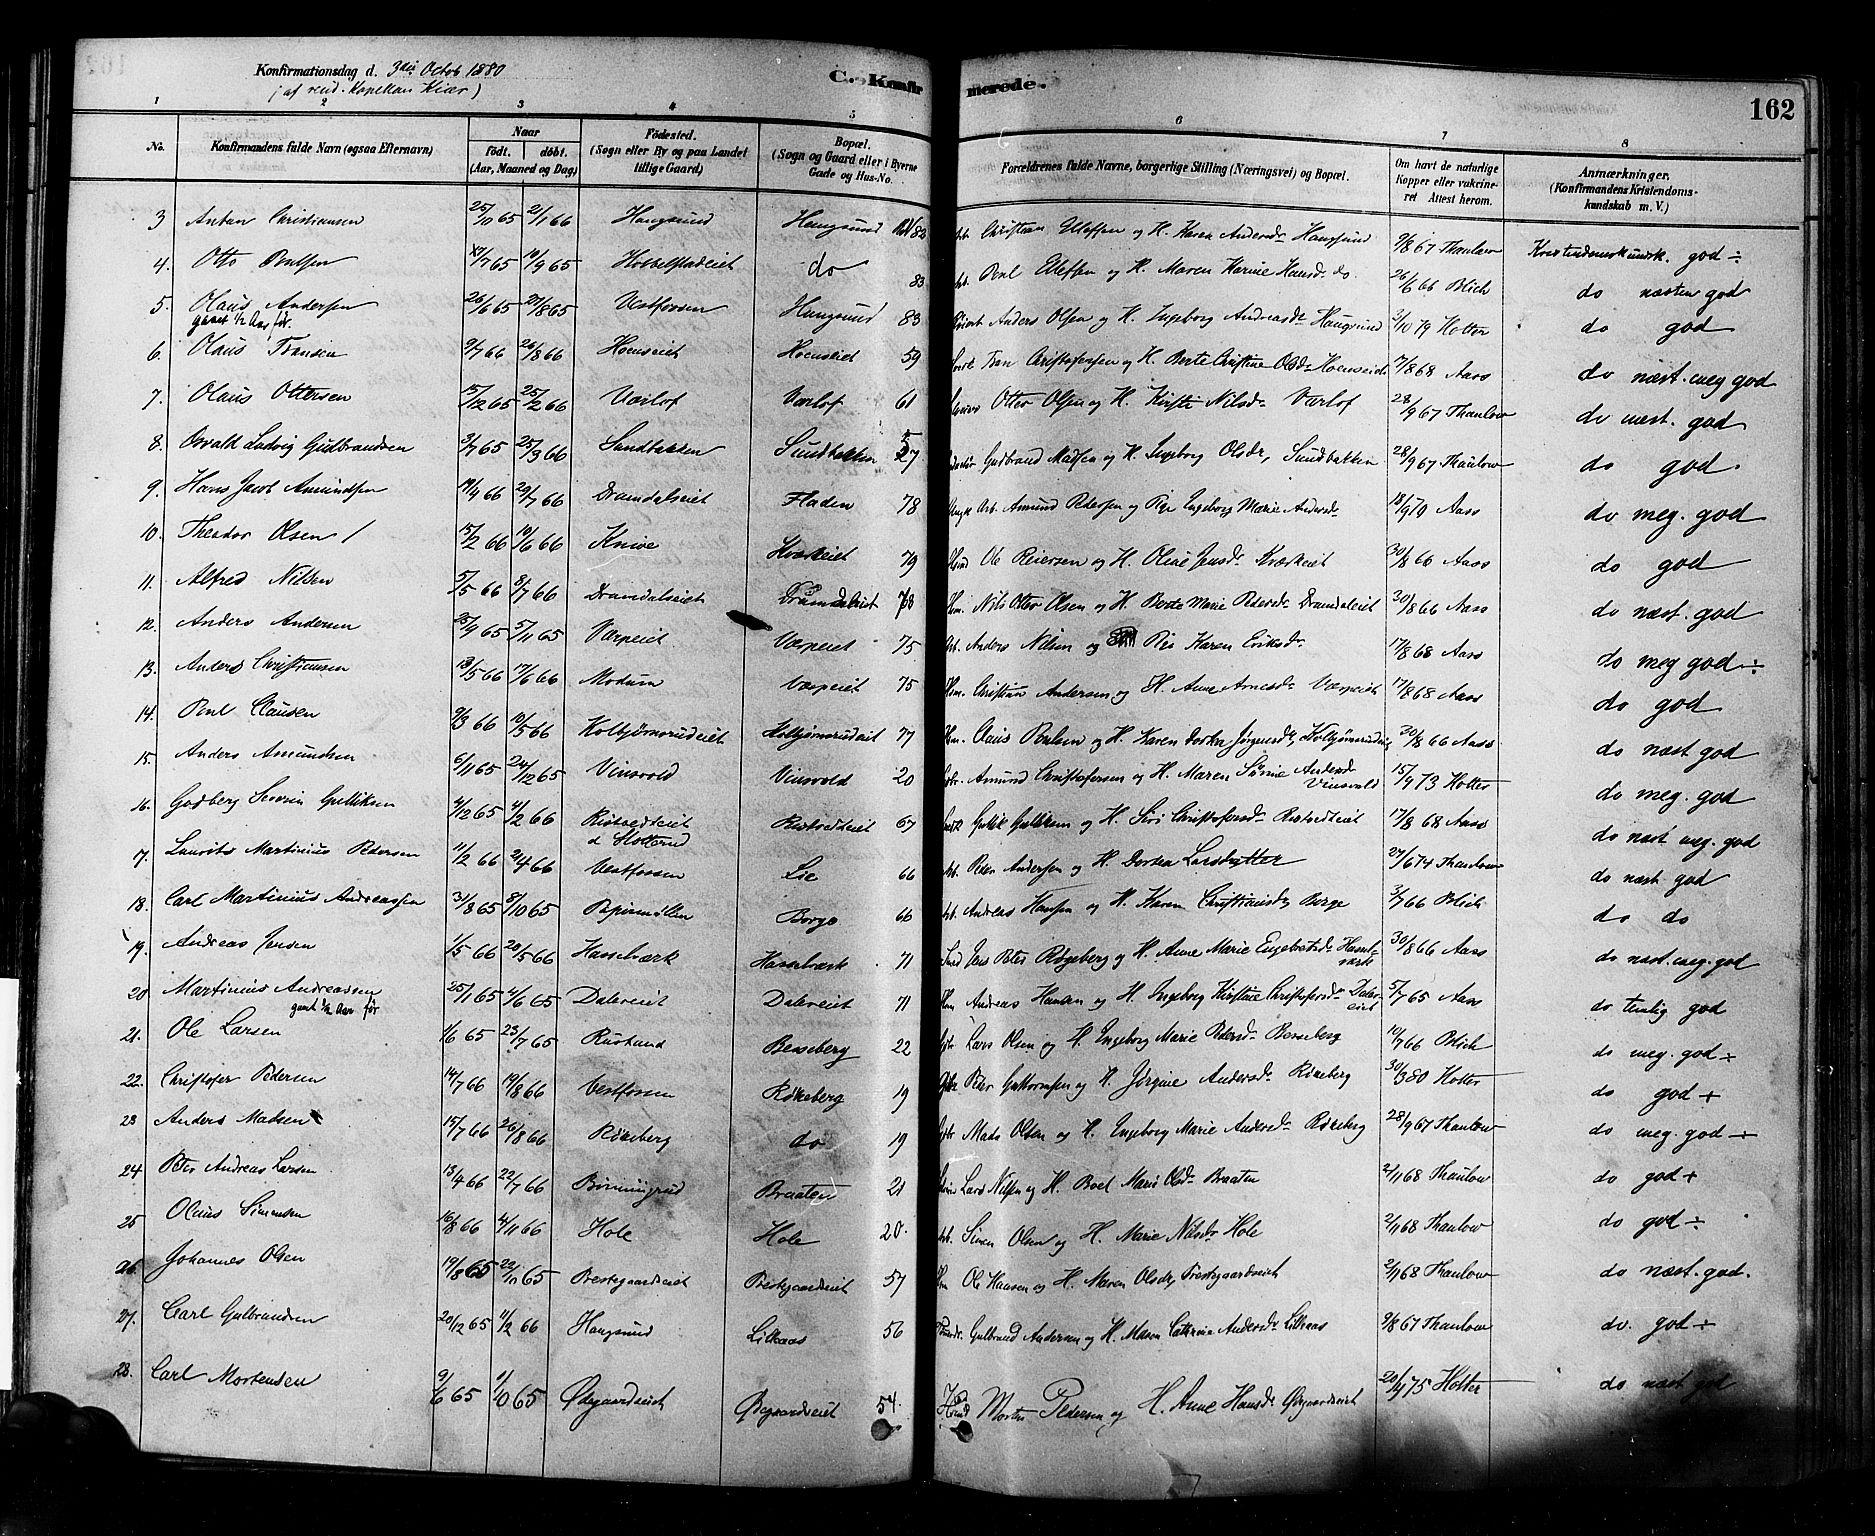 Konfirmationsdag d. 3die Octob 1880
C. Konfirmerede.
162
1 2 3 4 5 6 7 8
No. Konfirmandens fulde Navn (ogsaa Efternavn) Naar født. døbt. (Aar, Maaned og Dag) Fødested. (Sogn eller By og paa Landet tillige Gaard) Bopæl. (Sogn og Gaard eller i Byerne Gade og Hus-No. Forældrenes fulde Navne, borgerlige Stilling (Næringsvei) og Bopæl. Om havt de naturlige Kopper eller vakcineret Attest herom. Anmærkninger. (Konfirmandens Kristendomskundskab m. V.)
3 Anton Christiansen 25/11 65 2/1 66 Haugsund Haugsund 82 Christian Ulessen og H. Karen Andersd. Haugsund 9/8 67 Thaulow Kristendomskundsk. god ÷
4. Otto Poulsen 10/9 65 do 83 Poul Ellefsen og H. Maren Karine Hansd. do. 26/6 66 Blich do næsten god
5. Olaus Andersen 26/6 65 27/8 65 Vestfossen Haugsund 83 Anders Olsen og H. Ingeborg Andreasd. Haugsund 3/10 79 Hotter do god
gaaet 1/2 Aar før.
6. Olaus Fransen 9/7 66 26/8 66 Hoenseiet Hoenseiet 59 Christofersen og H. Berte Christine Olsd. Hoenseiet 17/8 68 Aass do næst. meg god
7. Olaus Ottersen 15/12 65 25/2 66 Varlof Varlof 61 Otter Olsen og H. Kirsti Nilsd. Varlof 28/9 67 Thaulow do næst. god
8. Osvald Ludvig Gudbrandsen 3/7 65 25/3 66 Sundbakken Sundbakken 27 Gudbrand Madsen og H. Ingeborg Olsdr, Sundbakken 28/9 67 Thaulow do god.
9. Hans Jacob Amundsen 19/4 66 29/7 66 Dramdalseiet Fladen 78 Amund Pedersen og Pige Ingeborg Marie Andersd. 18/9 70 Aass do meg. god
10. Theodor Olsen 15/2 66 10/6 66 Knive Kværkeiet 79 Ole Reiersen og H. Oline Jensd. Kværkeiet 30/8 66 Aass do god
11. Alfred Nilsen 5/5 66 8/7 66 Dramdalseiet Dramdalseiet 78 Hm. Nils Otter Olsen og H. Berte Marie Pedersd. Dramdaleiet 30/8 66 Aass do næst. god
12. Anders Andersen 23/9 65 5/11 65 Værpeiet Værpeiet 75 Arb. Anders Nilsen og Pige Karen Eriksd. 17/8 68 Aass do meg god ÷
13. Anders Christiansen 13/5 66 17/6 66 Modum Værpeiet 75 Hm. Christian Andersen og H. Anne Arnesd. Værpeiet 17/8 68 Aass do god
14. Poul Clausen 9/3 66 10/5 66 Kolbjørnsrudeiet Kolbjørnsrudeiet 77 Hm. Claus Poulsen og H. Karen Dortea Jørgensd. Kolbjørnsrudeie 30/8 66 Aass do næst god
15. Anders Amundsen 6/11 65 24/12 65 Vinsvold Vinsvold 20 Amund Christofersen og H. Maren Sørine Andersd. Vinsvold 15/9 73 Hotter do meg. god
16. Godberg Severin Gulliksen 4/12 65 4/2 66 Ristvedteiet Ristvedteiet 67 Gullik Gulliksen og H. Siri Christofersd. Ristvedteiet 17/8 68 Aass do næst meg. god
17. Laurits Martinius Pedersen 11/2 66 2/4 66 Vestfossen Lie 66 Arb. Peder Andersen og H. Dortea Larsdatter 27/6 74 Thaulow do næst god
18. Carl Martinius Andreassen 31/8 65 8/10 65 Papirmøllen Borge 66 Arb. Andreas Hansen og H. Karen Christiansd. Borge 3/7 66 Blich do do
19. Andreas Jensen 1/5 66 20/5 66 Hasselværk Hasselværk 71 Smed Jens Peter Røgeberg og H. Anne Marie Engebretsd. Hasselværk 30/8 66 Aass do næst. meg. god
20 Martinius Andreassen 25/1 65 4/6 65 Dalereiet Dalereiet 71 Hm Andreas Hansen og H. Ingeborg Kirstine Christofersd. Dalereiet 5/7 65 Aass do temlig god
gaaet 1/2 Aar før
21. Ole Larsen 1/6 65 23/7 65 Rustand Besseberg 22 Lars Olsen og H. Ingeborg Marie Pedersd. Besseberg 10/7 66 Blich do meg. god ÷
22. Christofer Pedersen 14/7 66 19/8 66 Vestfossen Røkeberg 19 Peder Guttormsen og H. Jørgine Andersd. Røkeberg 30/3 80 Hotter do god ÷
23 Anders Madsen 15/7 66 26/8 66 Røkeberg do 19 Mads Olsen og H. Ingeborg Marie Andersd. Røkeberg 28/9 67 Thaulow do meg. god ÷
24 Peter Andreas Larsen 13/4 66 22/7 66 Braaten 21 Lars Nilsen og H. Boel Marie Olsd. Braaten 2/11 68 Thaulow do god ÷
25 Olaus Simensen 16/8 66 4/11 66 Hole Hole 20. Arb. Simen Olsen og H. Marie Nilsd. Hole 2/11 68 Thaulow do god ÷
26. Johannes Olsen 19/8 65 22/11 65 Prestegaardseiet Prestegaardseiet 57 Hm Ole Hansen og H. Maren Olsdr, Prestegaardseiet 2/11 68 Thaulow do næst. god.
27. Carl Gulbrandsen 20/12 65 11/2 66 Haugsund Lilleaas 56 Gulbrand Andersen og H. Maren Cathrine Andersd. Lilleaas 9/8 67 Thaulow do. god ÷
28. Carl Mortensen 9/6 65 1/10 65 Ødegaardseiet Ødegaardseiet 54. Morten Pedersen og H. Anne Hansd. Ødegaardseiet 20/4 75 Hotter do næst god